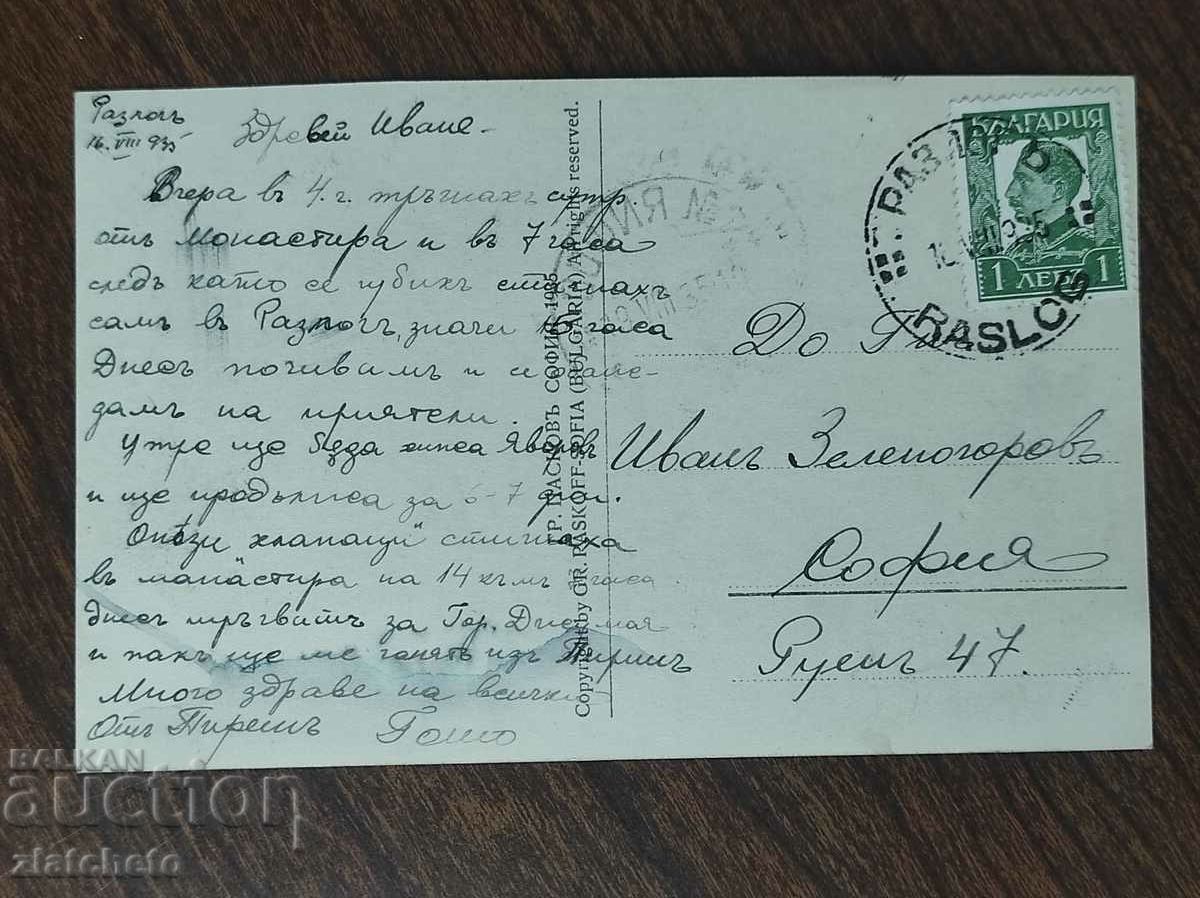 Разлогъ
16. VIII 935
Здравей Иване -
Вчера въ 4. г. тръгнахъ сутр.
отъ монастира и въ 7 часа
следъ като се губихъ стигнахъ
самъ въ Разлогъ, значи часа
Днесъ почивамъ и
дамъ на приятели.
Утре ще Яворовъ
и ще продължа за 6-7 дни.
Онѣзи хлапащи стигнаха
въ манастира на 14 къмъ часа
днес тръгватъ за Гор. Джумая
и пакъ ще ме гонятъ изъ Пиринъ
Много здраве на всички
Отъ Пиринъ Гошо
ГР. ПАСКОВЪ СОФИЯ 1935
Copyright by GR. PASKOFF-SOFIA (BULGARIA) All rights reserved.
БЪЛГАРИЯ
1 ЛЕВЪ 1
РАЗЛОГЪ
RASLOG
До Г-нъ
Иванъ Зеленогоровъ
София
Русенъ 47.
BALKAN
auction
zlatcheto